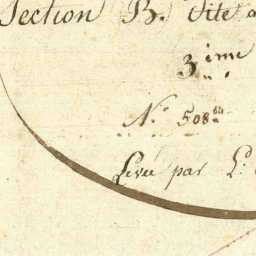 Section B. dite
3ème
N° 508
Levée par L: